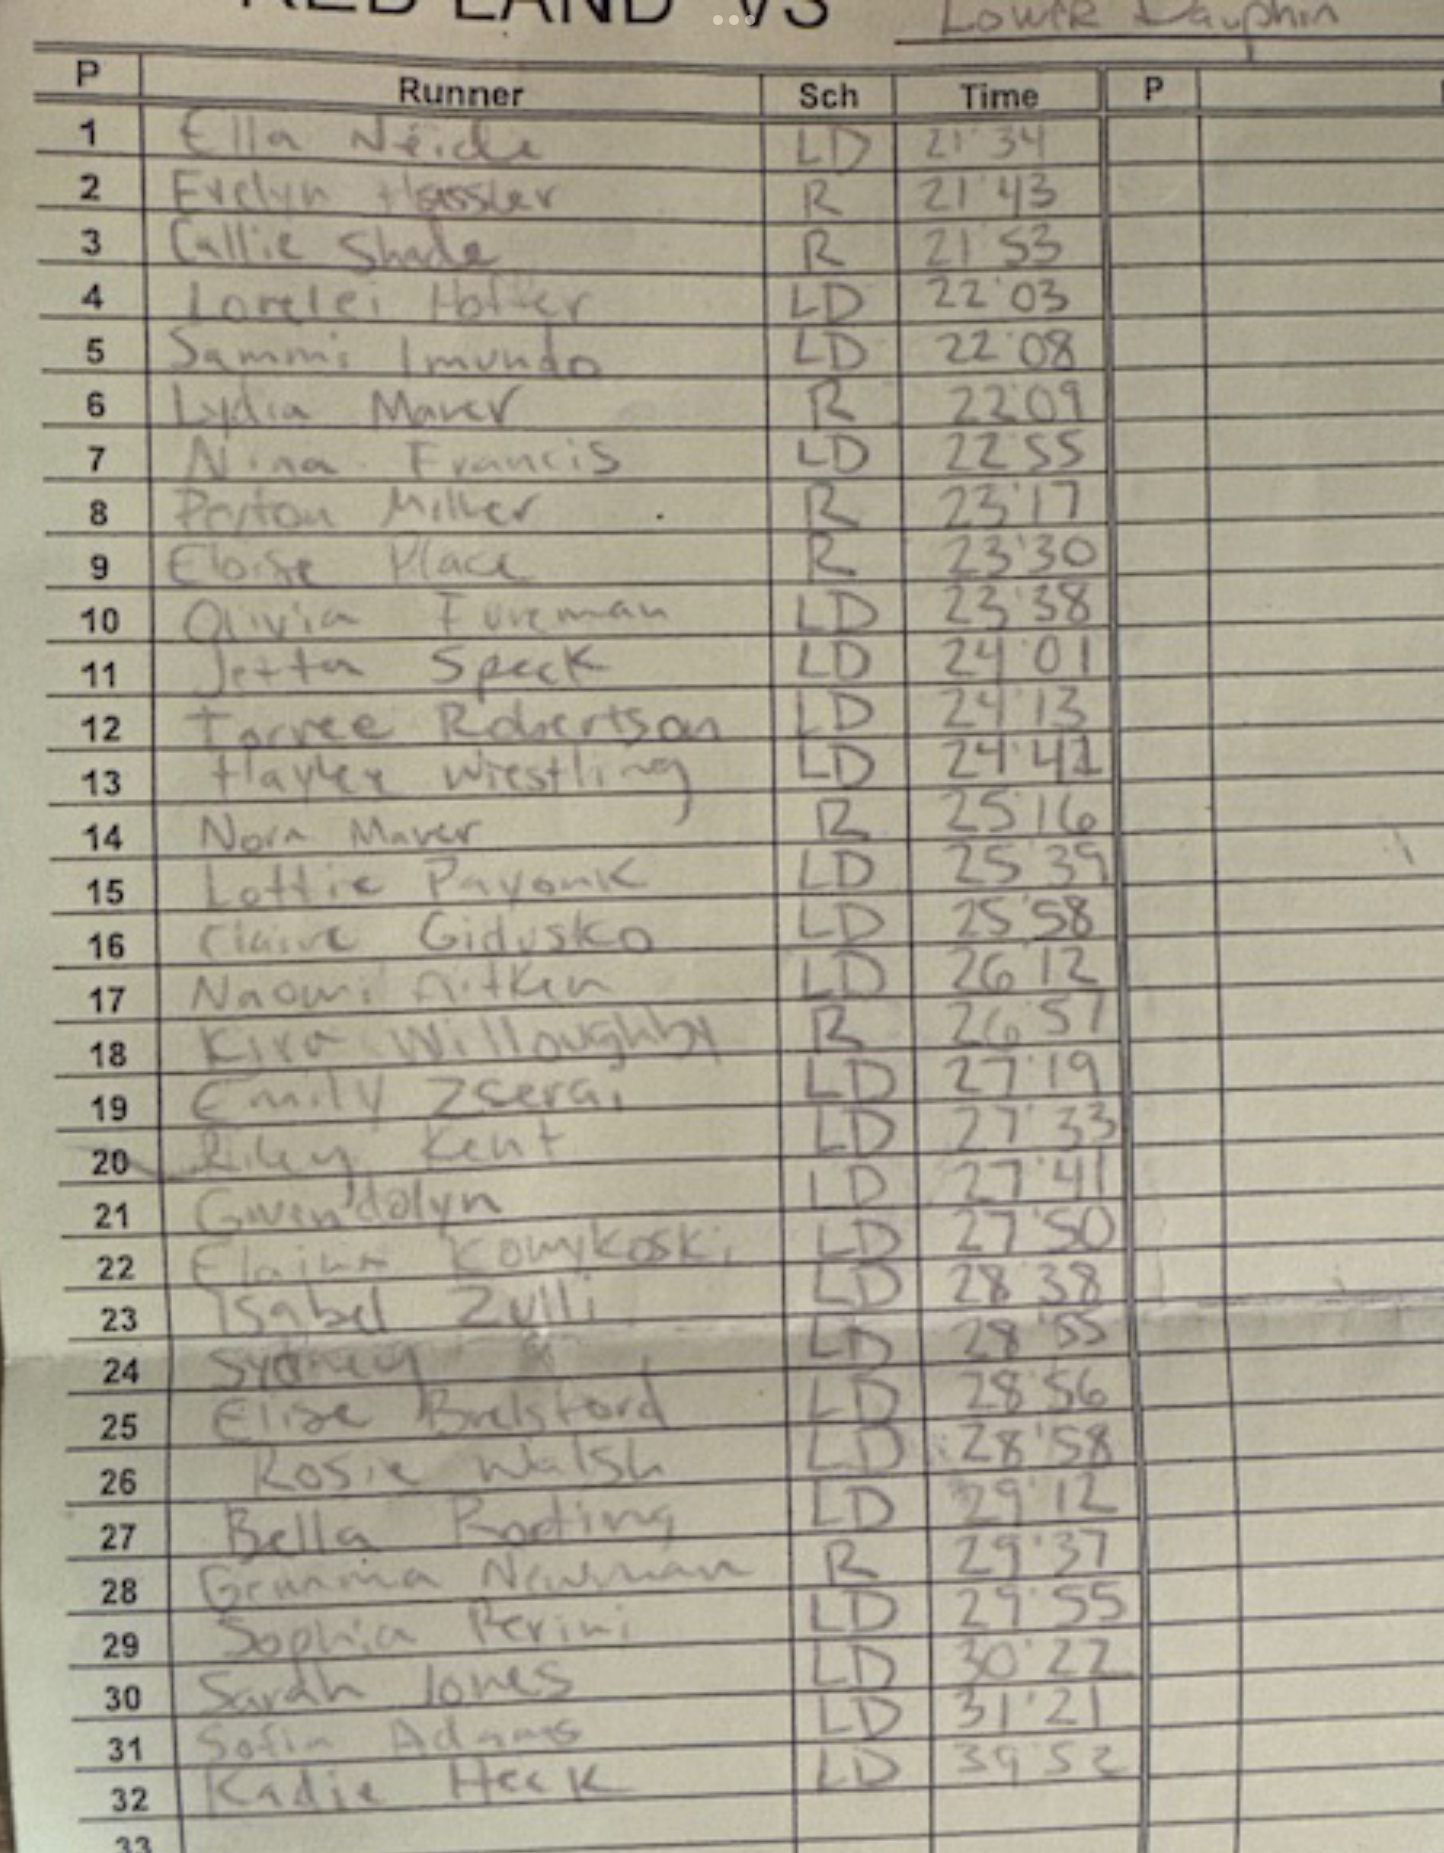 RED LAND VS Lower Dauphin
P Runner Sch Time P
1 Ella Neidi LD 21'34
2 Evelyn Hassler R 21'43
3 Callie Shade R 21'53
4 Lorelei Hoffer LD 22'03
5 Sammi Imundo LD 22'08
6 Lydia Maver R 22'09
7 Nina Francis LD 22'55
8 Peyton Miller R 23'17
9 Eloise Place R 23'30
10 Olivia Foreman LD 23'38
11 Jetta Speck LD 24'01
12 Torree Robertson LD 24'13
13 Hayley Wiestling LD 24'41
14 Nora Maver R 25'16
15 Lottie Payonk LD 25'39
16 Claire Gidusko LD 25'58
17 Naomi Aitken LD 26'12
18 Kira Willoughby R 26'57
19 Emily Zserai LD 27'19
20 Riley Kent LD 27'33
21 Gwendolyn LD 27'41
22 Elaina LD 27'50
23 Isabel Zulli LD 28'38
24 Sydney LD 28'55
25 Elise Brelsford LD 28'56
26 Rosie Walsh LD 28'58
27 Bella LD 29'12
28 Gemma Newman R 29'37
29 Sophia Perini LD 29'55
30 Sarah Jones LD 30'22
31 Sofia Adams LD 31'21
32 Kadie Heck LD 39'52
33